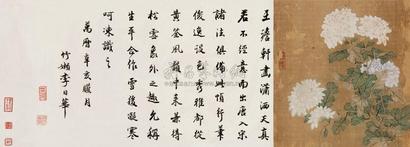 王澹軒畫瀟洒天真
若不經意而出唐入宋
諸法俱備此幀行筆
俊逸設色秀雅都從
黄筌風韻中来兼得
松雪象外之趣允稱
生平合作雪後凝寒
呵凍識之
萬曆辛亥臘月
竹嬾李日華